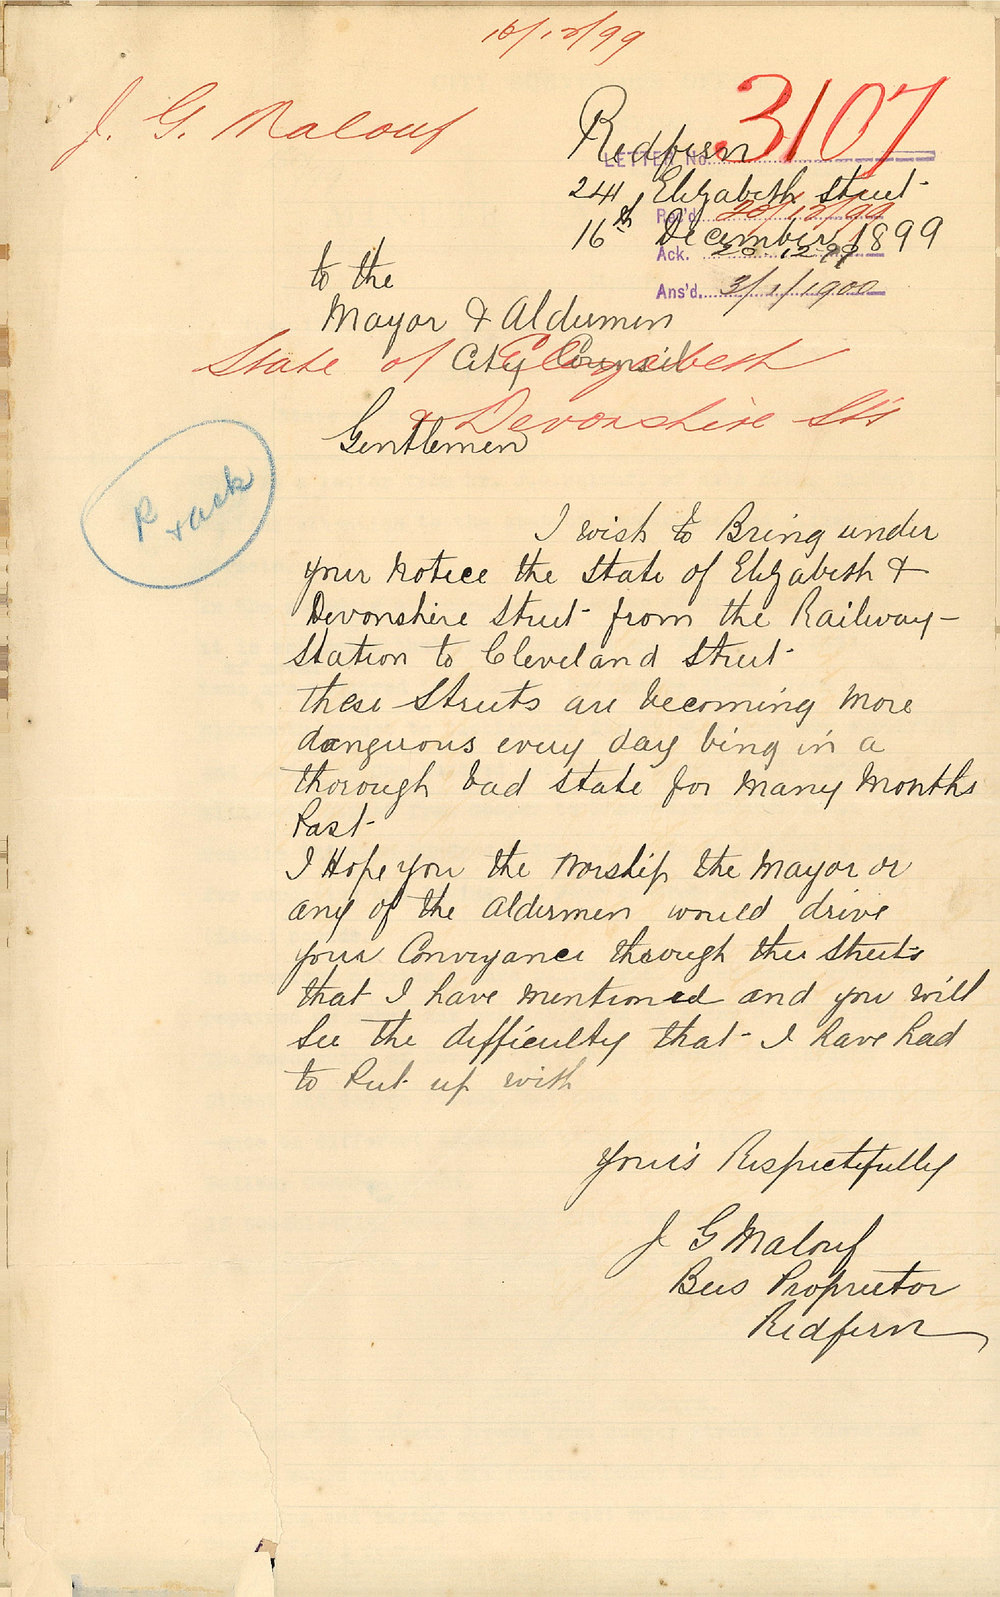 16/12/99
J. G. Malouf
3107
Redfern
LETTER No.
241 Elizabeth Street
Rec'd. 20/12/99
16th December 1899
Ack. 20.12.99
to the
Ans'd. 3/1/1900
Mayor & Aldermen
City Council
State of Elizabeth
& Devonshire Sts
Gentlemen
R
& ack
I wish to Bring under
your Notice the State of Elizabeth &
Devonshire Street from the Railway-
Station to Cleveland Street
these Streets are becoming More
dangerous every day being in a
thorough bad State for Many Months
Past
I Hope you the Worship the Mayor or
any of the Aldermen would drive
your Conveyance through the Streets
that I have Mentioned and you will
See the difficulty that I have had
to Put up with
Your's Respectifully
J G Malouf
Bus Proprietor
Redfern